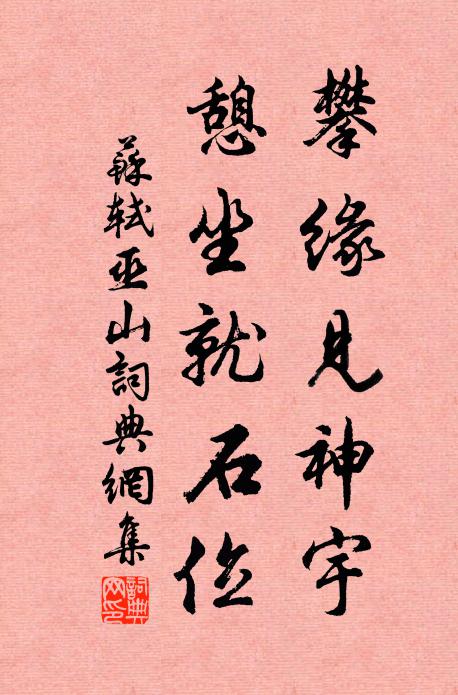 攀緣見神宇
憩坐就石位
蘇軾巫山詞典網集
詞典
网印